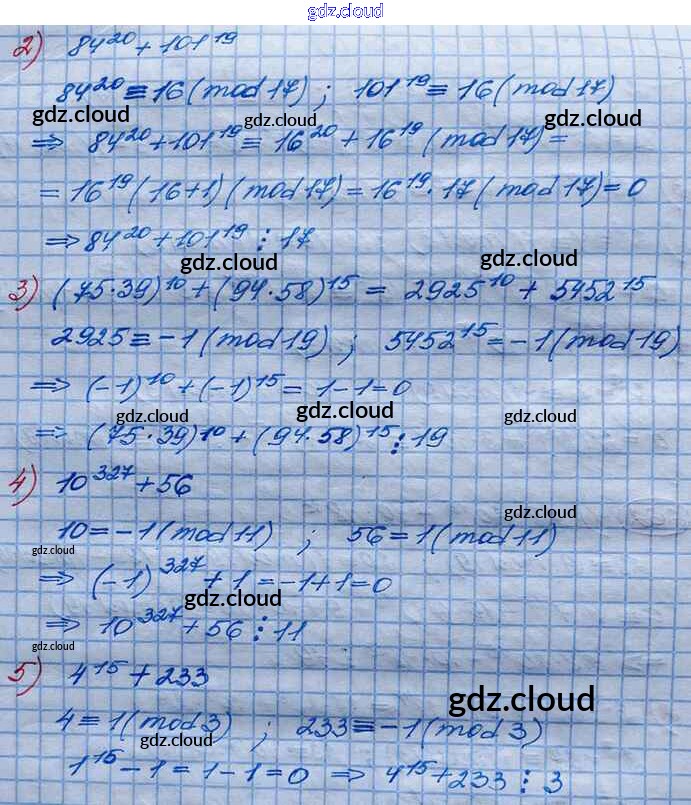 gdz.cloud
2) 84²⁰ + 101¹⁹
84²⁰ ≡ 16 (mod 17) ; 101¹⁹ ≡ 16 (mod 17)
gdz.cloud gdz.cloud gdz.cloud
⇒ 84²⁰ + 101¹⁹ ≡ 16²⁰ + 16¹⁹ (mod 17) =
= 16¹⁹ (16+1) (mod 17) = 16¹⁹ · 17 (mod 17) = 0
⇒ 84²⁰ + 101¹⁹ ⋮ 17
gdz.cloud gdz.cloud
3) (75·39)¹⁰ + (94·58)¹⁵ = 2925¹⁰ + 5452¹⁵
2925 ≡ -1 (mod 19) ; 5452¹⁵ = -1 (mod 19)
gdz.cloud gdz.cloud gdz.cloud
⇒ (-1)¹⁰ + (-1)¹⁵ = 1 - 1 = 0
gdz.cloud gdz.cloud gdz.cloud
⇒ (75·39)¹⁰ + (94·58)¹⁵ ⋮ 19
4) 10³²⁷ + 56
gdz.cloud
10 = -1 (mod 11) ; 56 = 1 (mod 11)
gdz.cloud
⇒ (-1)³²⁷ + 1 = -1 + 1 = 0
gdz.cloud
⇒ 10³²⁷ + 56 ⋮ 11
gdz.cloud
5) 4¹⁵ + 233
gdz.cloud
4 ≡ 1 (mod 3) ; 233 ≡ -1 (mod 3)
gdz.cloud
1¹⁵ - 1 = 1 - 1 = 0 ⇒ 4¹⁵ + 233 ⋮ 3
gdz.cloud